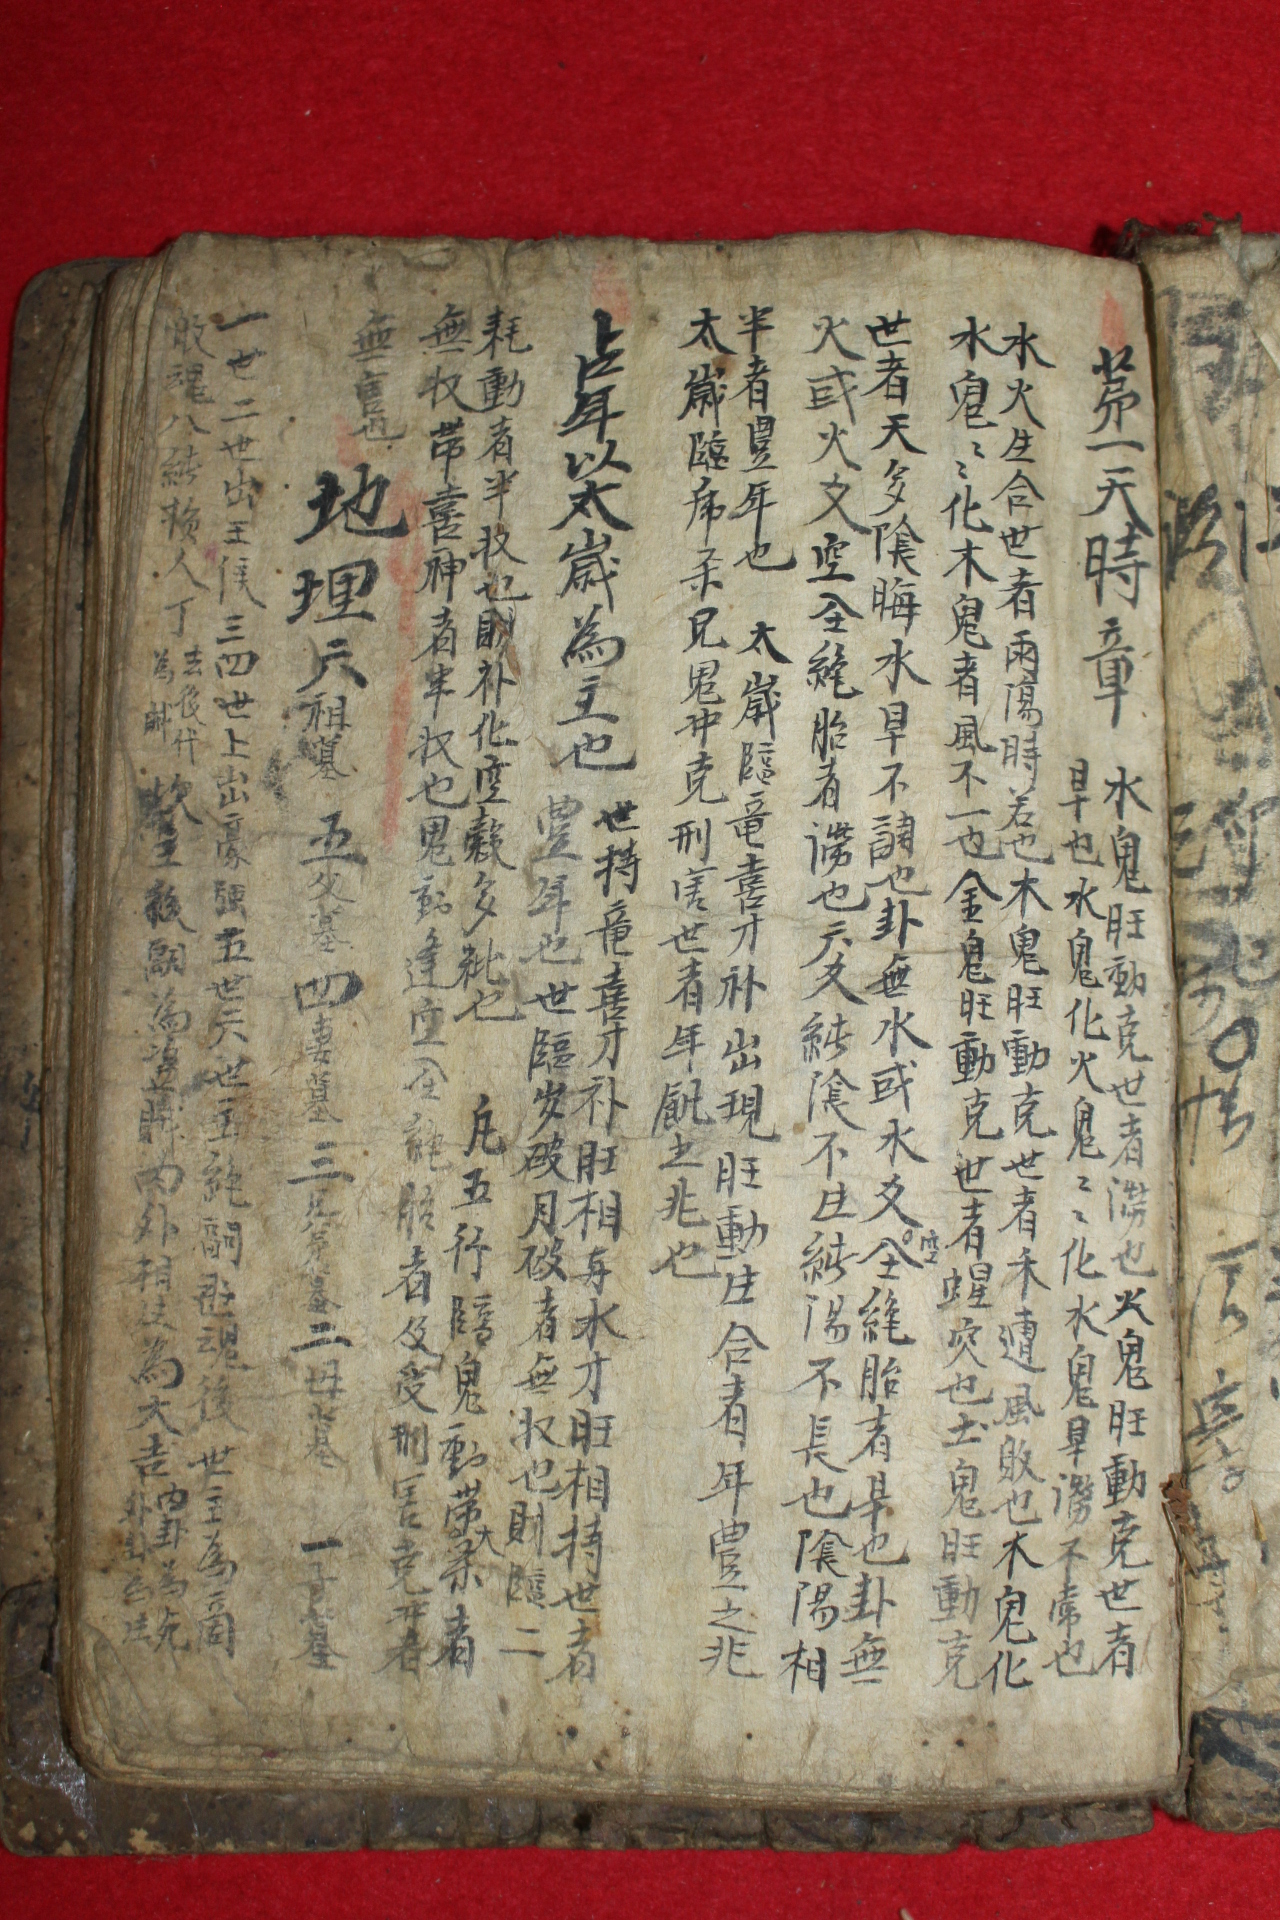 第一天時章
水鬼旺動克世者澇也火鬼旺動克世者
旱也水鬼化火鬼〻化水鬼旱澇不常也
水火生合世者雨陽時若也木鬼旺動克世者禾遭風敗也木鬼化
水鬼〻化木鬼者風不一也金鬼旺動克世者蝗灾也土鬼旺動克
世者天多陰晦水旱不調也卦無水或水爻空全絶胎者旱也卦無
火或火爻空全絶胎者澇也六爻純陰不生純陽不長也陰陽相
半者豊年也 太歲臨竜喜才補出現旺動生合者年豊之兆
太歲臨 見鬼冲克刑害世者年飢之兆也
占年以太歲為主也
世持竜喜才补旺相再水才旺相持世者
豊年也世臨岁破月破者無収也財臨二
耗動者半收也財补化空穀多秕也 凡五行臨鬼動帶大杀者
無收帶喜神者半收也鬼動逢空全絶胎者及受刑害克者
無害也
地理六祖墓 五父墓四妻墓三兄弟墓二母墓 一子墓
一世二世出王侯三四世上出豪强五世六世主絶嗣遊魂後世主為商
内外相生為大吉